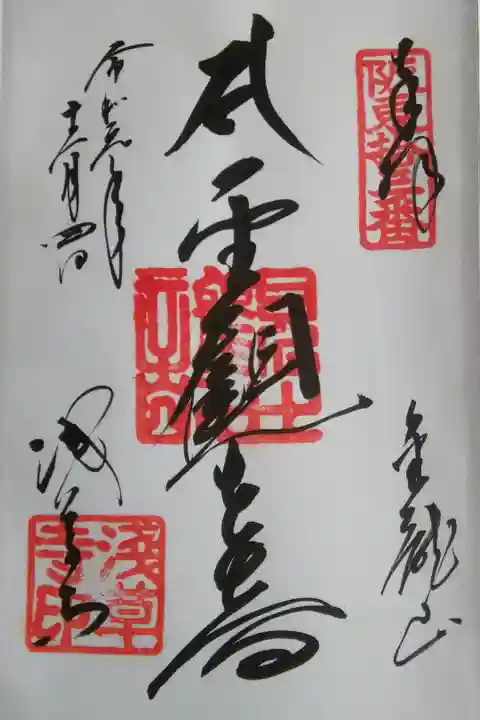 奉拝
阪東拾三番
金龍山
聖觀世音
令和元年
十二月四日
浅草寺
浅草寺印